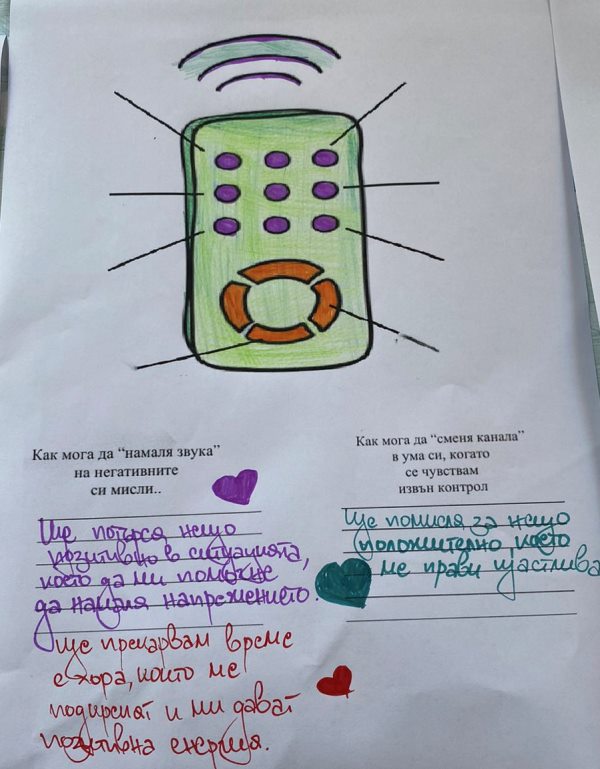 Как мога да "намаля звука"
на негативните
си мисли..
Ще потърся нещо
позитивно в ситуацията,
което да ми помогне
да намаля напрежението.
Ще прекарвам време
с хора, които ме
подкрепят и ми дават
позитивна енергия.
Как мога да "сменя канала"
в ума си, когато
се чувствам
извън контрол
Ще помисля за нещо
положително, което
ме прави щастлива